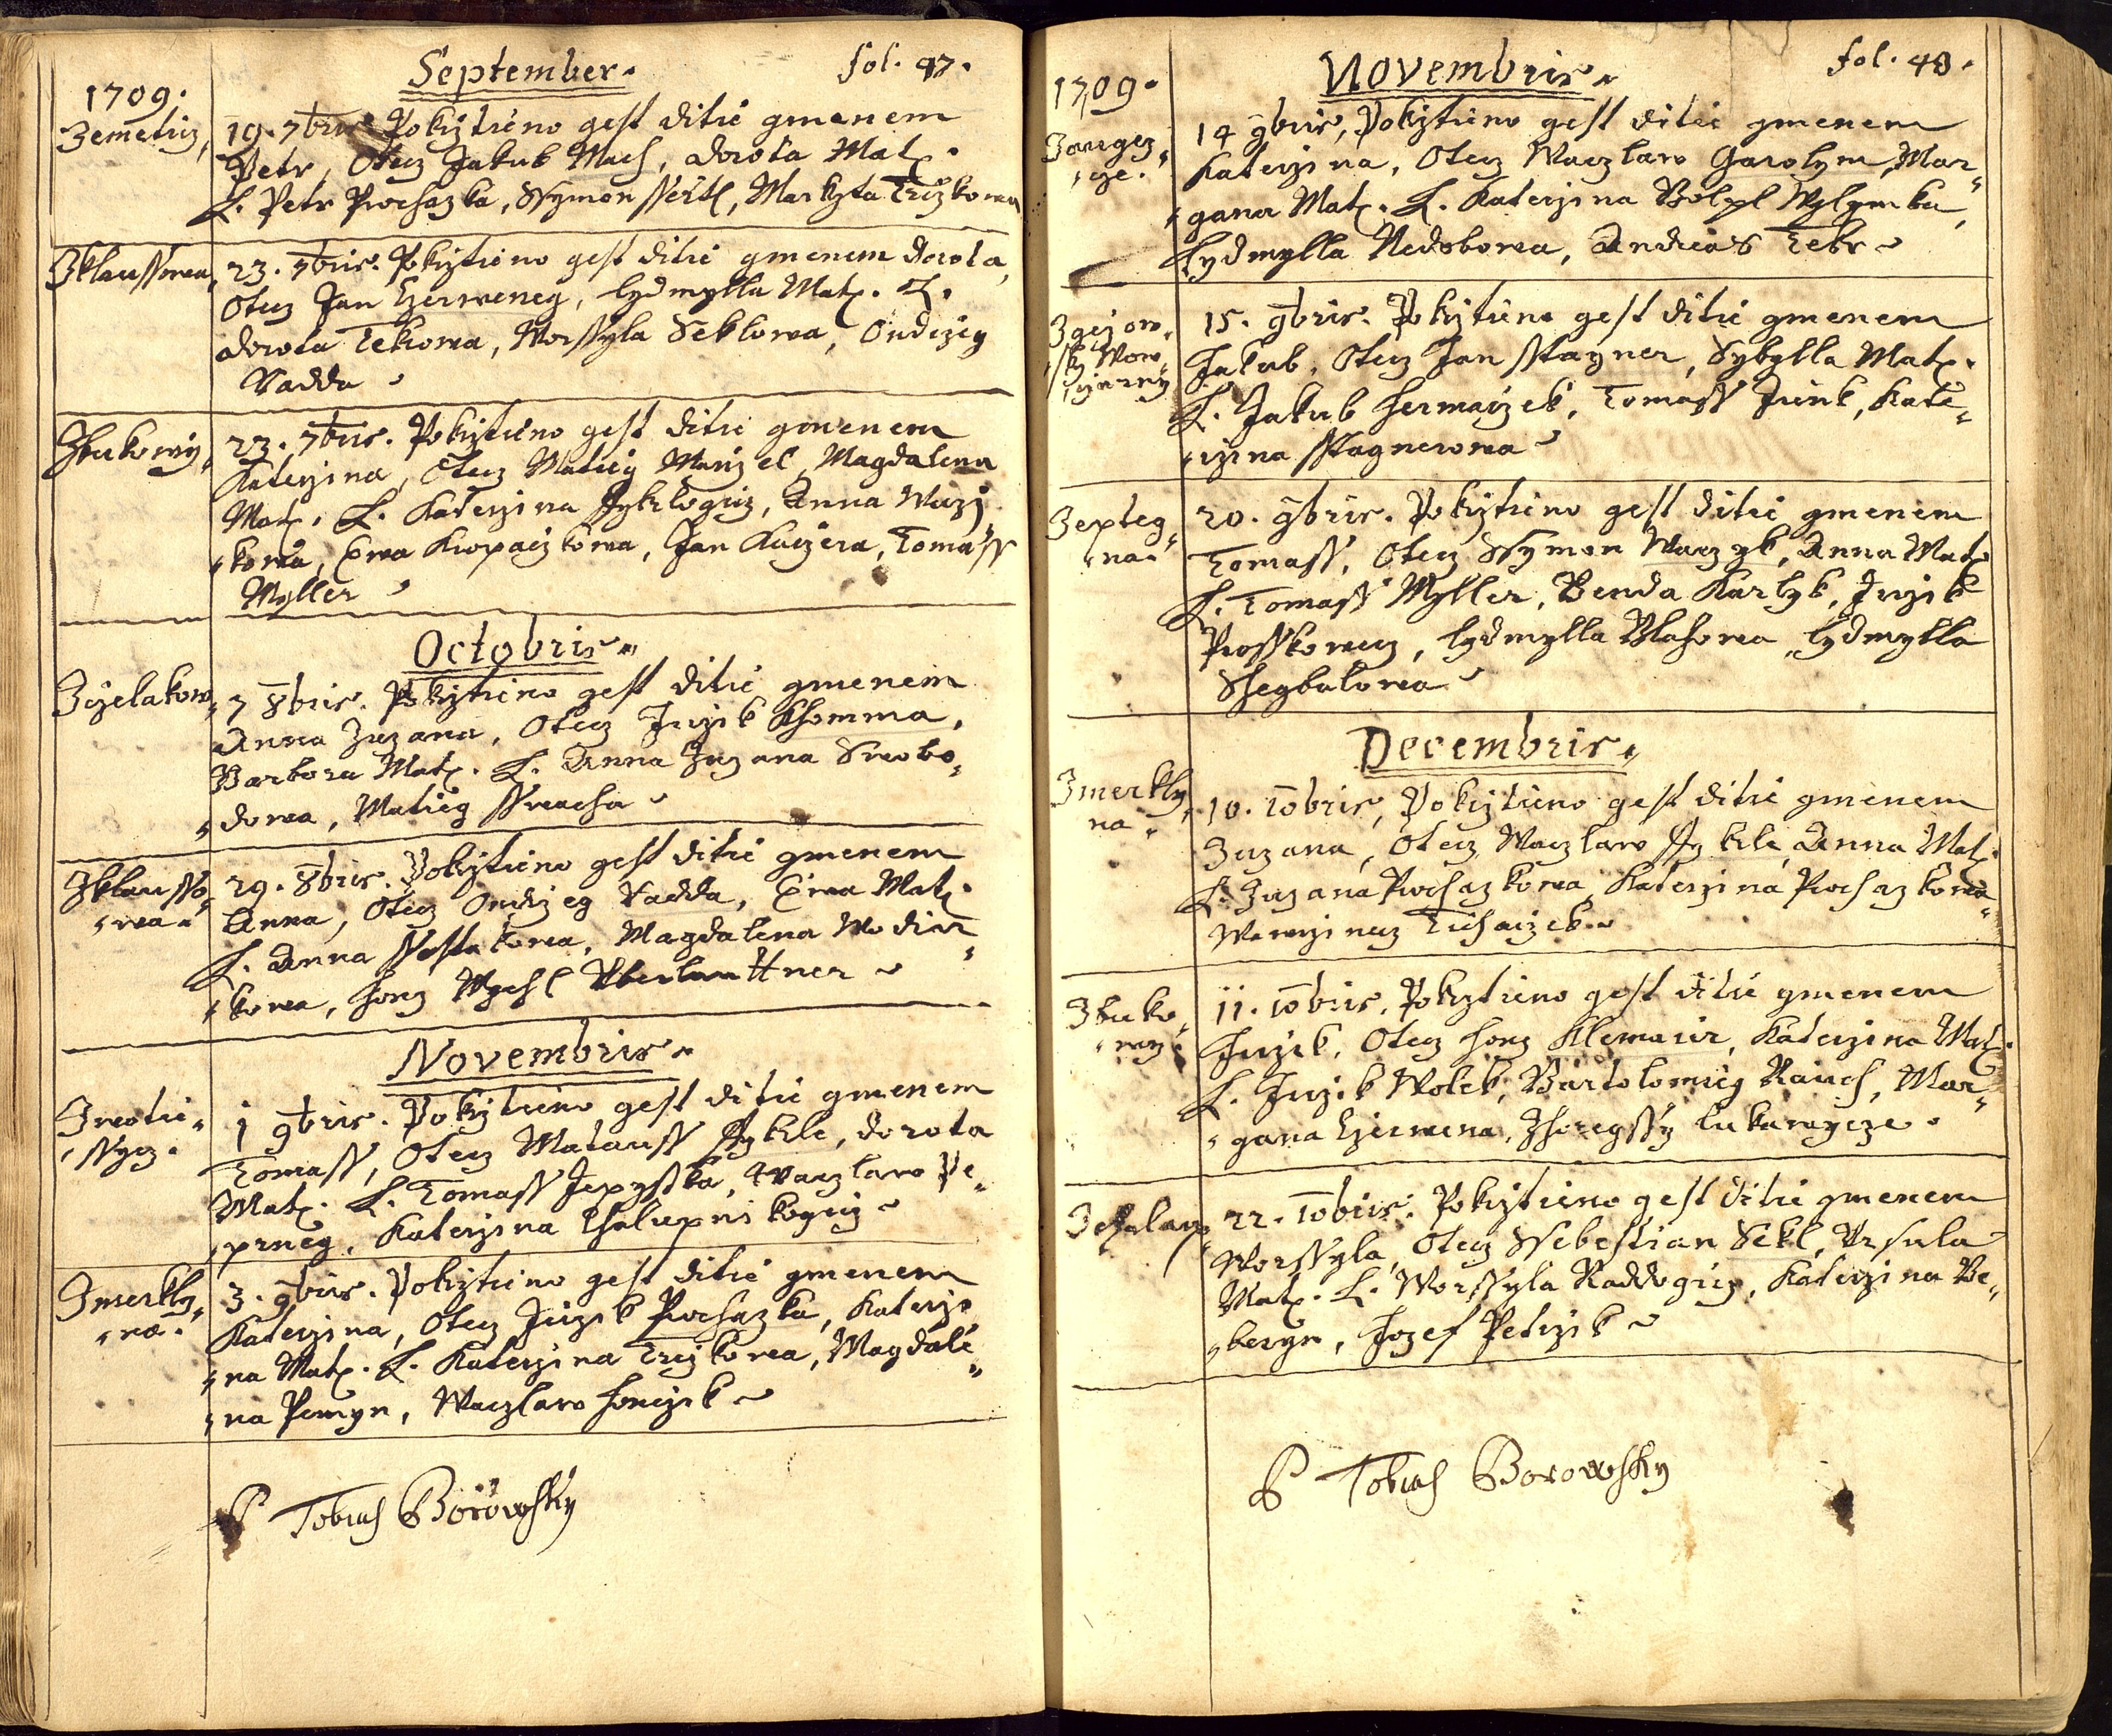 September.
fol. 47.
1709.
Zemeticz,
19. 7bris Pokrztieno gest ditie gmenem
Petr, Otecz Jakub Mach, dorota Mat.
L. Petr Prochazka, Ssymon ssertl, Markyta
Zklaussowa,
23. 7bris. Pokrztieno gest ditie gmenem dorota,
Otecz Jan Czerweneg, lydmylla Mat. L.
dorota Tekrowa, Worssyla Seklowa, Ondrzieg
Vadda
Zbukowy,
23. 7bris. Pokrztieno gest ditie gmenem
Katerzina, Otecz Matieg Magdalena
Mat. L. Katerzina Anna
kowa, Ewa Kropaczkowa, Jan Kuczera, Tomass
Myller
Octobris
Zczelakow,
7 8bris. Pokrztieno gest ditie gmenem
Anna Zuzana, Otecz Jirzik Thomma,
Barbora Mat. L. Anna Zuzana Swobo,
dowa, Matieg sswacha
Zklausso,
wa
29. 8bris. Pokrztieno gest ditie gmenem
Anna, Otecz Ondrzeg Vadda, Ewa Mat.
L. Anna Magdalena Wodicz
kowa, honz
Novembris
Zwotie,
ssycz.
1 9bris. Pokrztieno gest ditie gmenem
Tomass, Otecz Matauss Sykle, dorota
Mat. L. Tomass Waczlaw Pe,
prneg, Katerzina Chalupnikogicz
Zmerkly,
na.
3. 9bris. Pokrztieno gest ditie gmenem
Katerzina, Otecz Jirzik Prochazka, Katerzi
na Mat. L. Katerzina Magdale
na Waczlaw honzik
P Tobias Borowsky
Novembris
fol. 48.
1709.
Zaugez,
cze.
14 9bris, Pokrztieno gest ditie gmenem
Katerzina, Otecz Waczlaw Garolym, Mar,
gana Mat. L. Katerzina
lydmylla Nedobowa, Andreas Tekr
15. 9bris. Pokrztieno gest ditie gmenem
Jakub, Otecz Jan Stayner, Sybylla Mat.
L. Jakub hermaczek, Tomass Junk, Kate,
rzina Stagnerowa
Zepteg,
na
20. 9bris. Pokrztieno gest ditie gmenem
Tomass, Otecz Ssymon Waczyk, Anna Mat
L. Tomass Myller, Benda Karlyk, Jirzik
Prosskowecz, lydmylla Blahowa, lydmylla
Ssegbalowa
Decembris
Zmerkly,
na
10. 10bris, Pokrztieno gest ditie gmenem
Zuzana, Otecz Waczlaw Sykle, Anna Mat.
L. Zuzana Prochazkowa, Katerzina Prochazkowa
Wawrzinecz Tichaczek
Zbuko,
wy
11. 10bris, Pokrztieno gest ditie gmenem
Jirzik, Otecz honz Katerzina Mat.
L. Jirzik Wolek, Bartolomieg Rauch, Mar,
gana Czerwena, Zhoregssy lukawycze
22. 10bris. Pokrztieno gest ditie gmenem
Worssyla, Otecz Ssebestian Sekl, Ursula
Mat. L. Worssyla Raddogicz, Katerzina Be,
beryn, Jozef Petrzik
P Tobias Borowsky